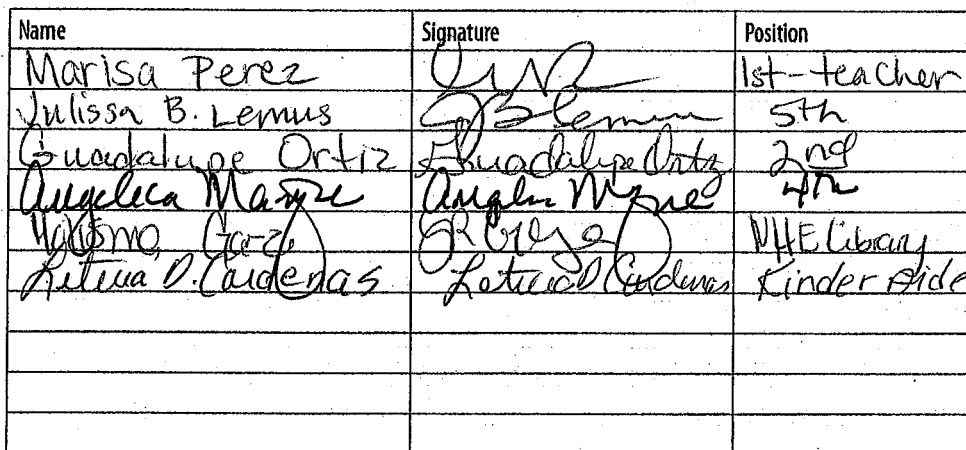 Name Signature Position
Marisa Perez 1st-teacher
Julissa B. Lemus JB Lemus 5th
Guadalupe Ortiz Guadalupe Ortiz 2nd
Angelica Angelica 4th
Garza NHE Library
Leticia D. Cardenas Leticia D Cardenas Kinder Aide